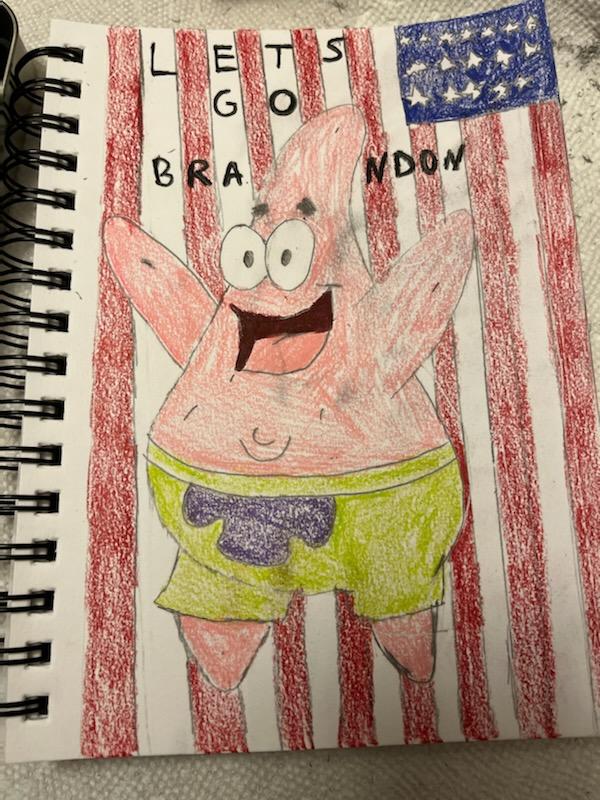 LETS
GO
BRANDON